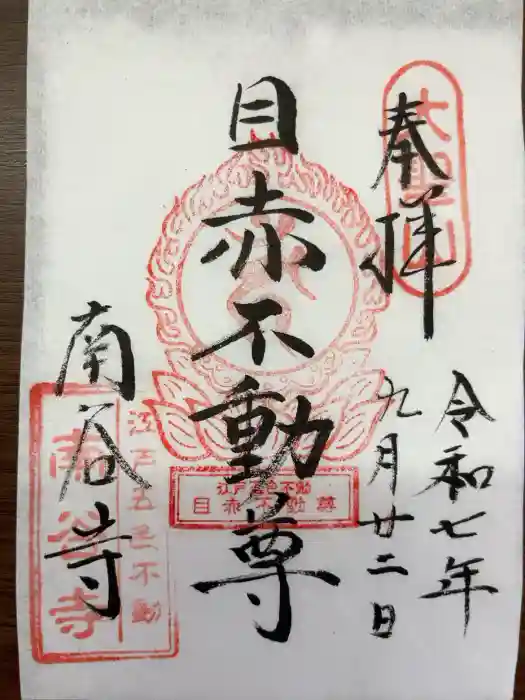 大聖山
奉拝
令和七年
九月廿二日
目赤不動尊
江戸五色不動
目赤不動尊
南谷寺
江戸五色不動
南谷寺